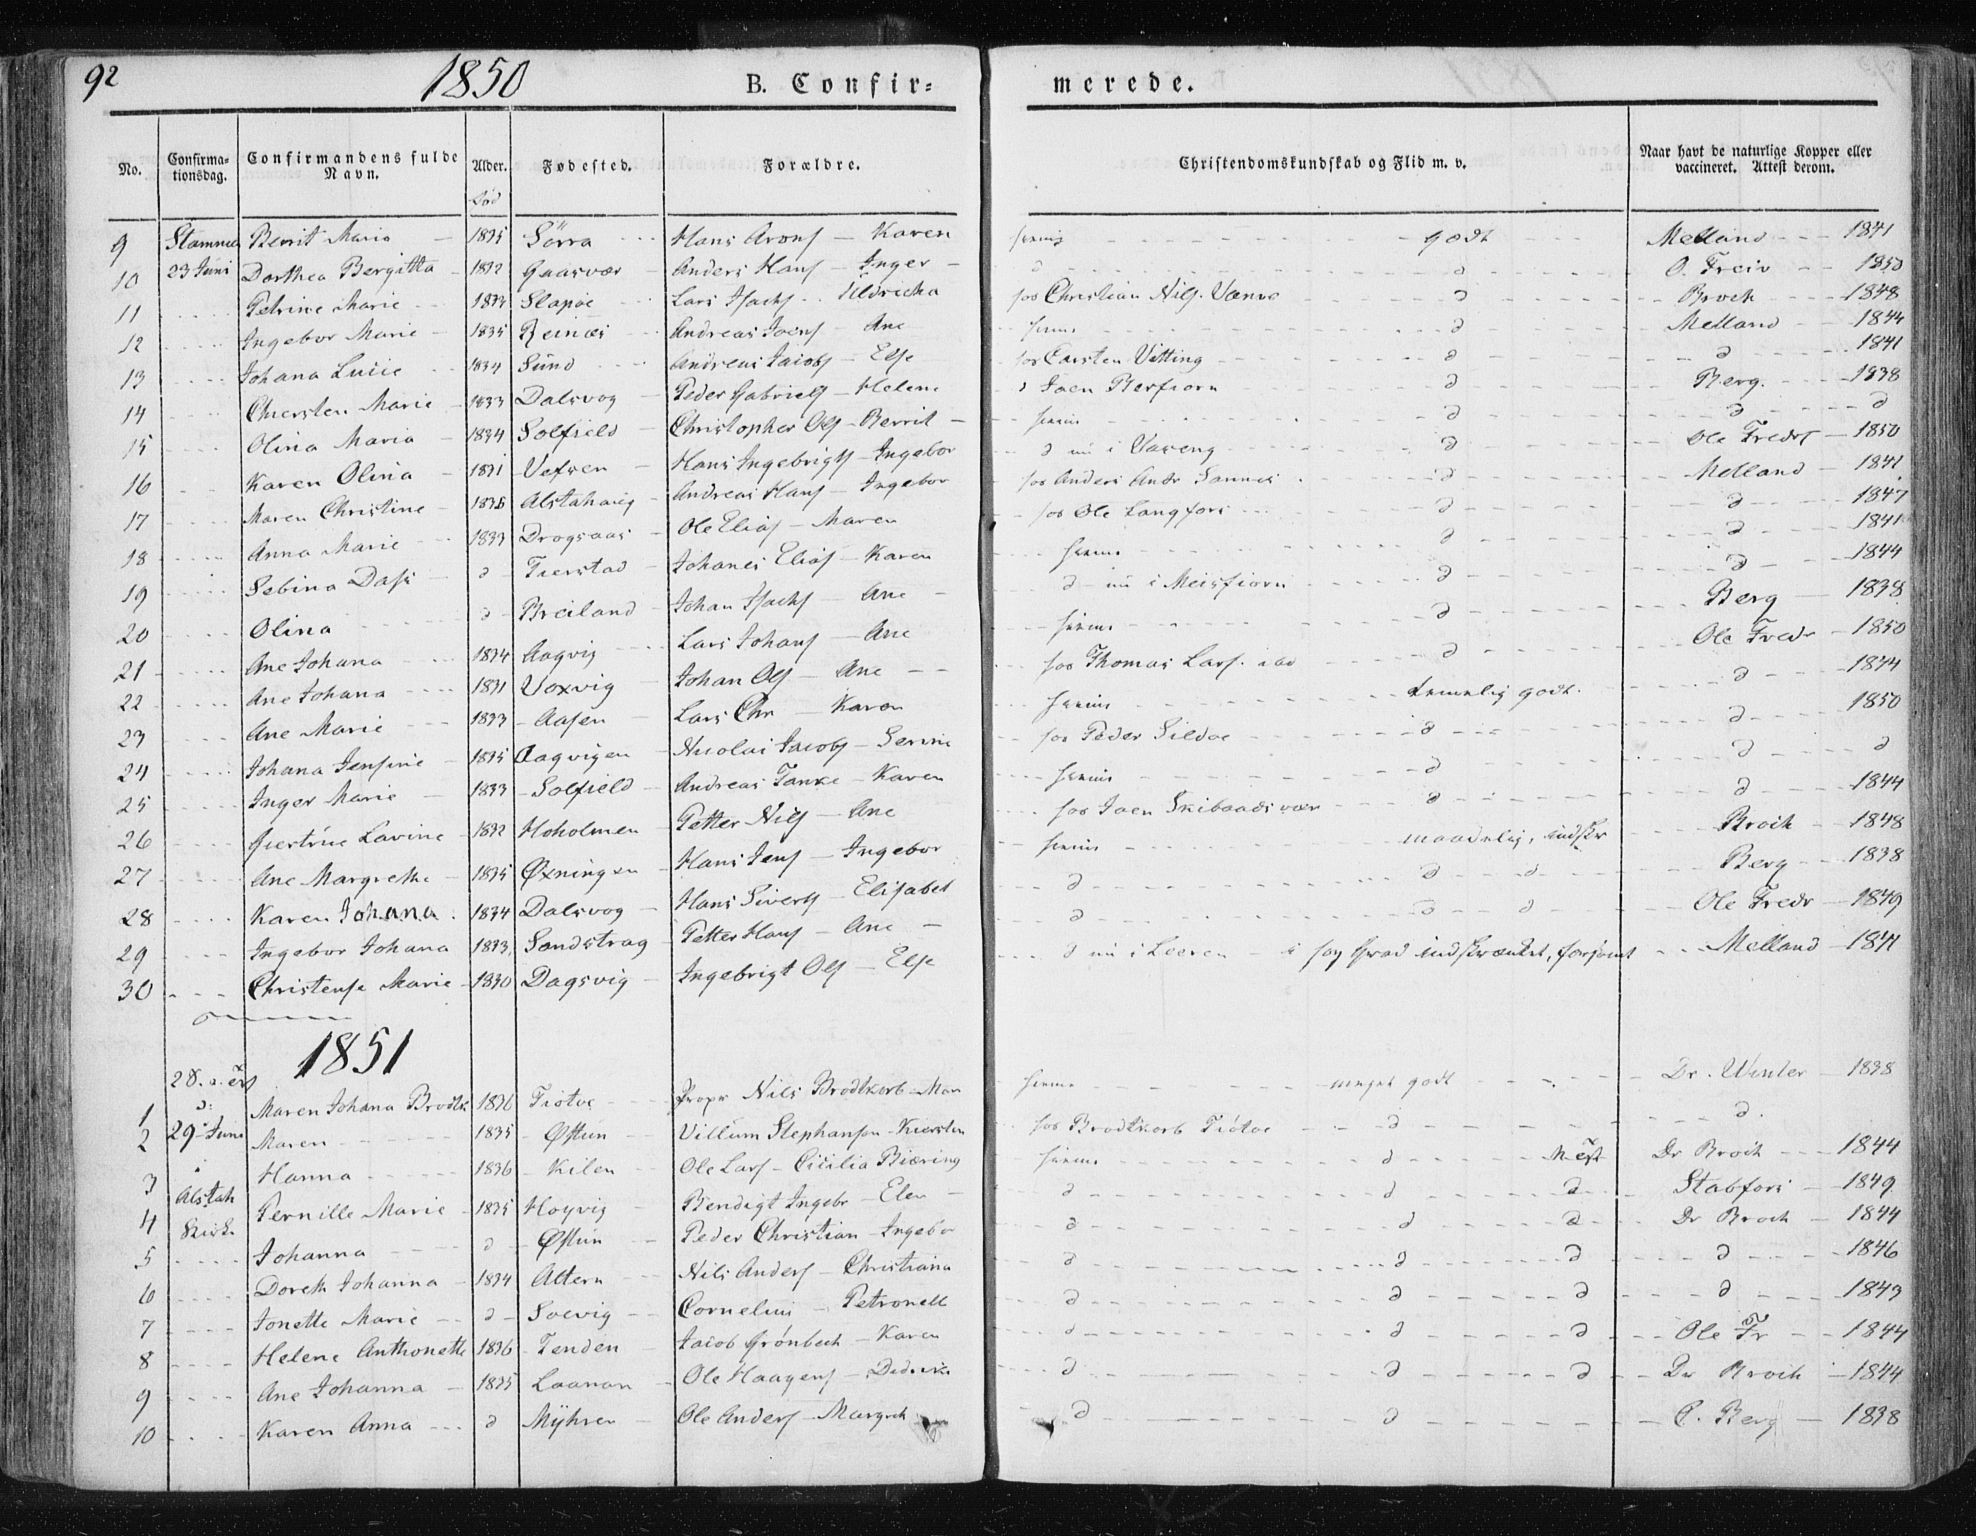 92 1850 B. Confir= merede.
No. Confirma-tionsdag. Confirmandens fulde Navn. Alder. Fødested. Forældre. Christendomskundskab og Flid m. v. Naar havt de naturlige Kopper eller vaccineret. Attest derom.
Død
9 Stamnes Berrit Maria 1835 Sörra Hans Arons - Karen hiem godt Melland 1841
10 23 Juni Dorthea Bergitta 1832 Gaasvær Anders Hans - Inger d d O. Freiv 1850
11 Petrine Marie 1833 Slapøe Lars Isachs - Uldricka hos Christian Nils. d Broch 1848
12 Ingebor Marie 1835 Reinæs Andreas Joens - Ane hiem d Melland 1844
13 Johana Lucie 1834 Sund Andreas Jacobs - Else hos Carsten Vitting d d 1841
14 Chiersten Marie 1833 Dalsvog Peder Gabriels - Helene d Joen d Berg 1838
15 Olina Maria 1834 Solfield Christopher Ols - Berrit hiem d d d
16 Karen Olina 1831 Vefsen Hans Ingebrigts - Ingebor d nu i Vaseng d Ole Fredr 1850
17 Maren Christine 1836 Alstahaug Andreas Hans - Ingebor hos Anders Andr Sannes d Melland 1841
18 Anna Marie 1833 Drogsaas Ole Elias - Maren hos Ole Langfors d d 1847
19 Sebina d Tierstad Johanes Elias - Karen hiem d d 1841
20 Olina d Breiland Johan Isachs - Ane d nu i Meisfiorn d d 1844
21 Ane Johana 1834 Aagvig Lars Johans - Ane hiem d Berg 1838
22 Ane Johana 1831 Voxvig Johan Ols - Ane hos Thomas Lars. d Ole Fredr 1850
23 Ane Marie 1833 Aasen Lars Chr - Karen hiem temmelig godt. d 1844
24 Johana Jensine 1835 Aagvigen Nicolai Jacobs - Serine hos Peder Sildøe d d 1850
25 Inger Marie 1833 Solfield Andreas Tanke - Karen hiem d d d
26 Giertrue Lavine 1832 Hoholmen Petter Nils - Ane hos Joen Skibaadsvær d d 1844
27 Ane Margrethe 1835 Øxningen Hans Jens - Ingebor hiem maadelig, indskr Broch 1848
28 Karen Johana 1834 Dalsvog Hans Siverts - Elisabet d d d Berg 1838
29 Ingebor Johana 1833 Sandstrag Petter Hans - Ane d d d Ole Fredr 1849
30 Christense Marie 1830 Dagsvig Ingebrigt Ols - Else d nu i Leeren - i høj Grad indskrænket, forsømt Melland 1841
1851
28.
1 Maren Johana Brodtk 1836 Tiøtøe Propr Nils Brodtkorb - Mar hiem meget godt Dr. Winter 1838
2 29 Juni Maren 1835 Østun Villum Stephansen - Kiersten hos Brodtkorb Tiøtøe d d
3 Hanna 1836 Kilen Ole Lars - Cicilia Biæring hiem d Dr Broch 1844
4 Alstah Pernille Marie 1835 Høyvig Bendigt Ingebr - Elen d d d Stabfors 1849
5 Kirke Johanna d Østun Peder Christian - Ingebor d d d Dr Broch 1844
6 Doreth Johanna 1834 Altern Nils Anders - Christiana d d d d 1846
7 Jonette Marie d Soevig Cornelius - Petronell d d d d 1843
8 Helene Anthonette 1836 Tenden Jacob Grønbech - Karen d d d Ole Fr 1844
9 Ane Johanna 1835 Laanan Ole Haagens - d d d Dr Broch 1844
10 Karen Anna d Myhren Ole Anders - Margreth d d C. Berg 1838